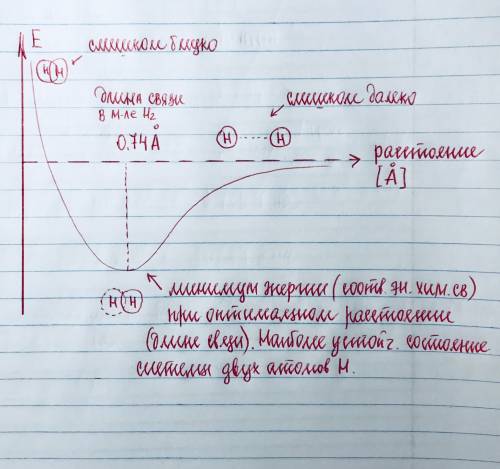 E
слишком близко
H H
длина связи
в м-ле H₂
0.74Å
слишком далеко
H H
расстояние
[Å]
H H
минимум энергии (соотв. эн. хим. св)
при оптимальном расстоянии
(длине связи). Наиболее устойч. состояние
системы двух атомов H.